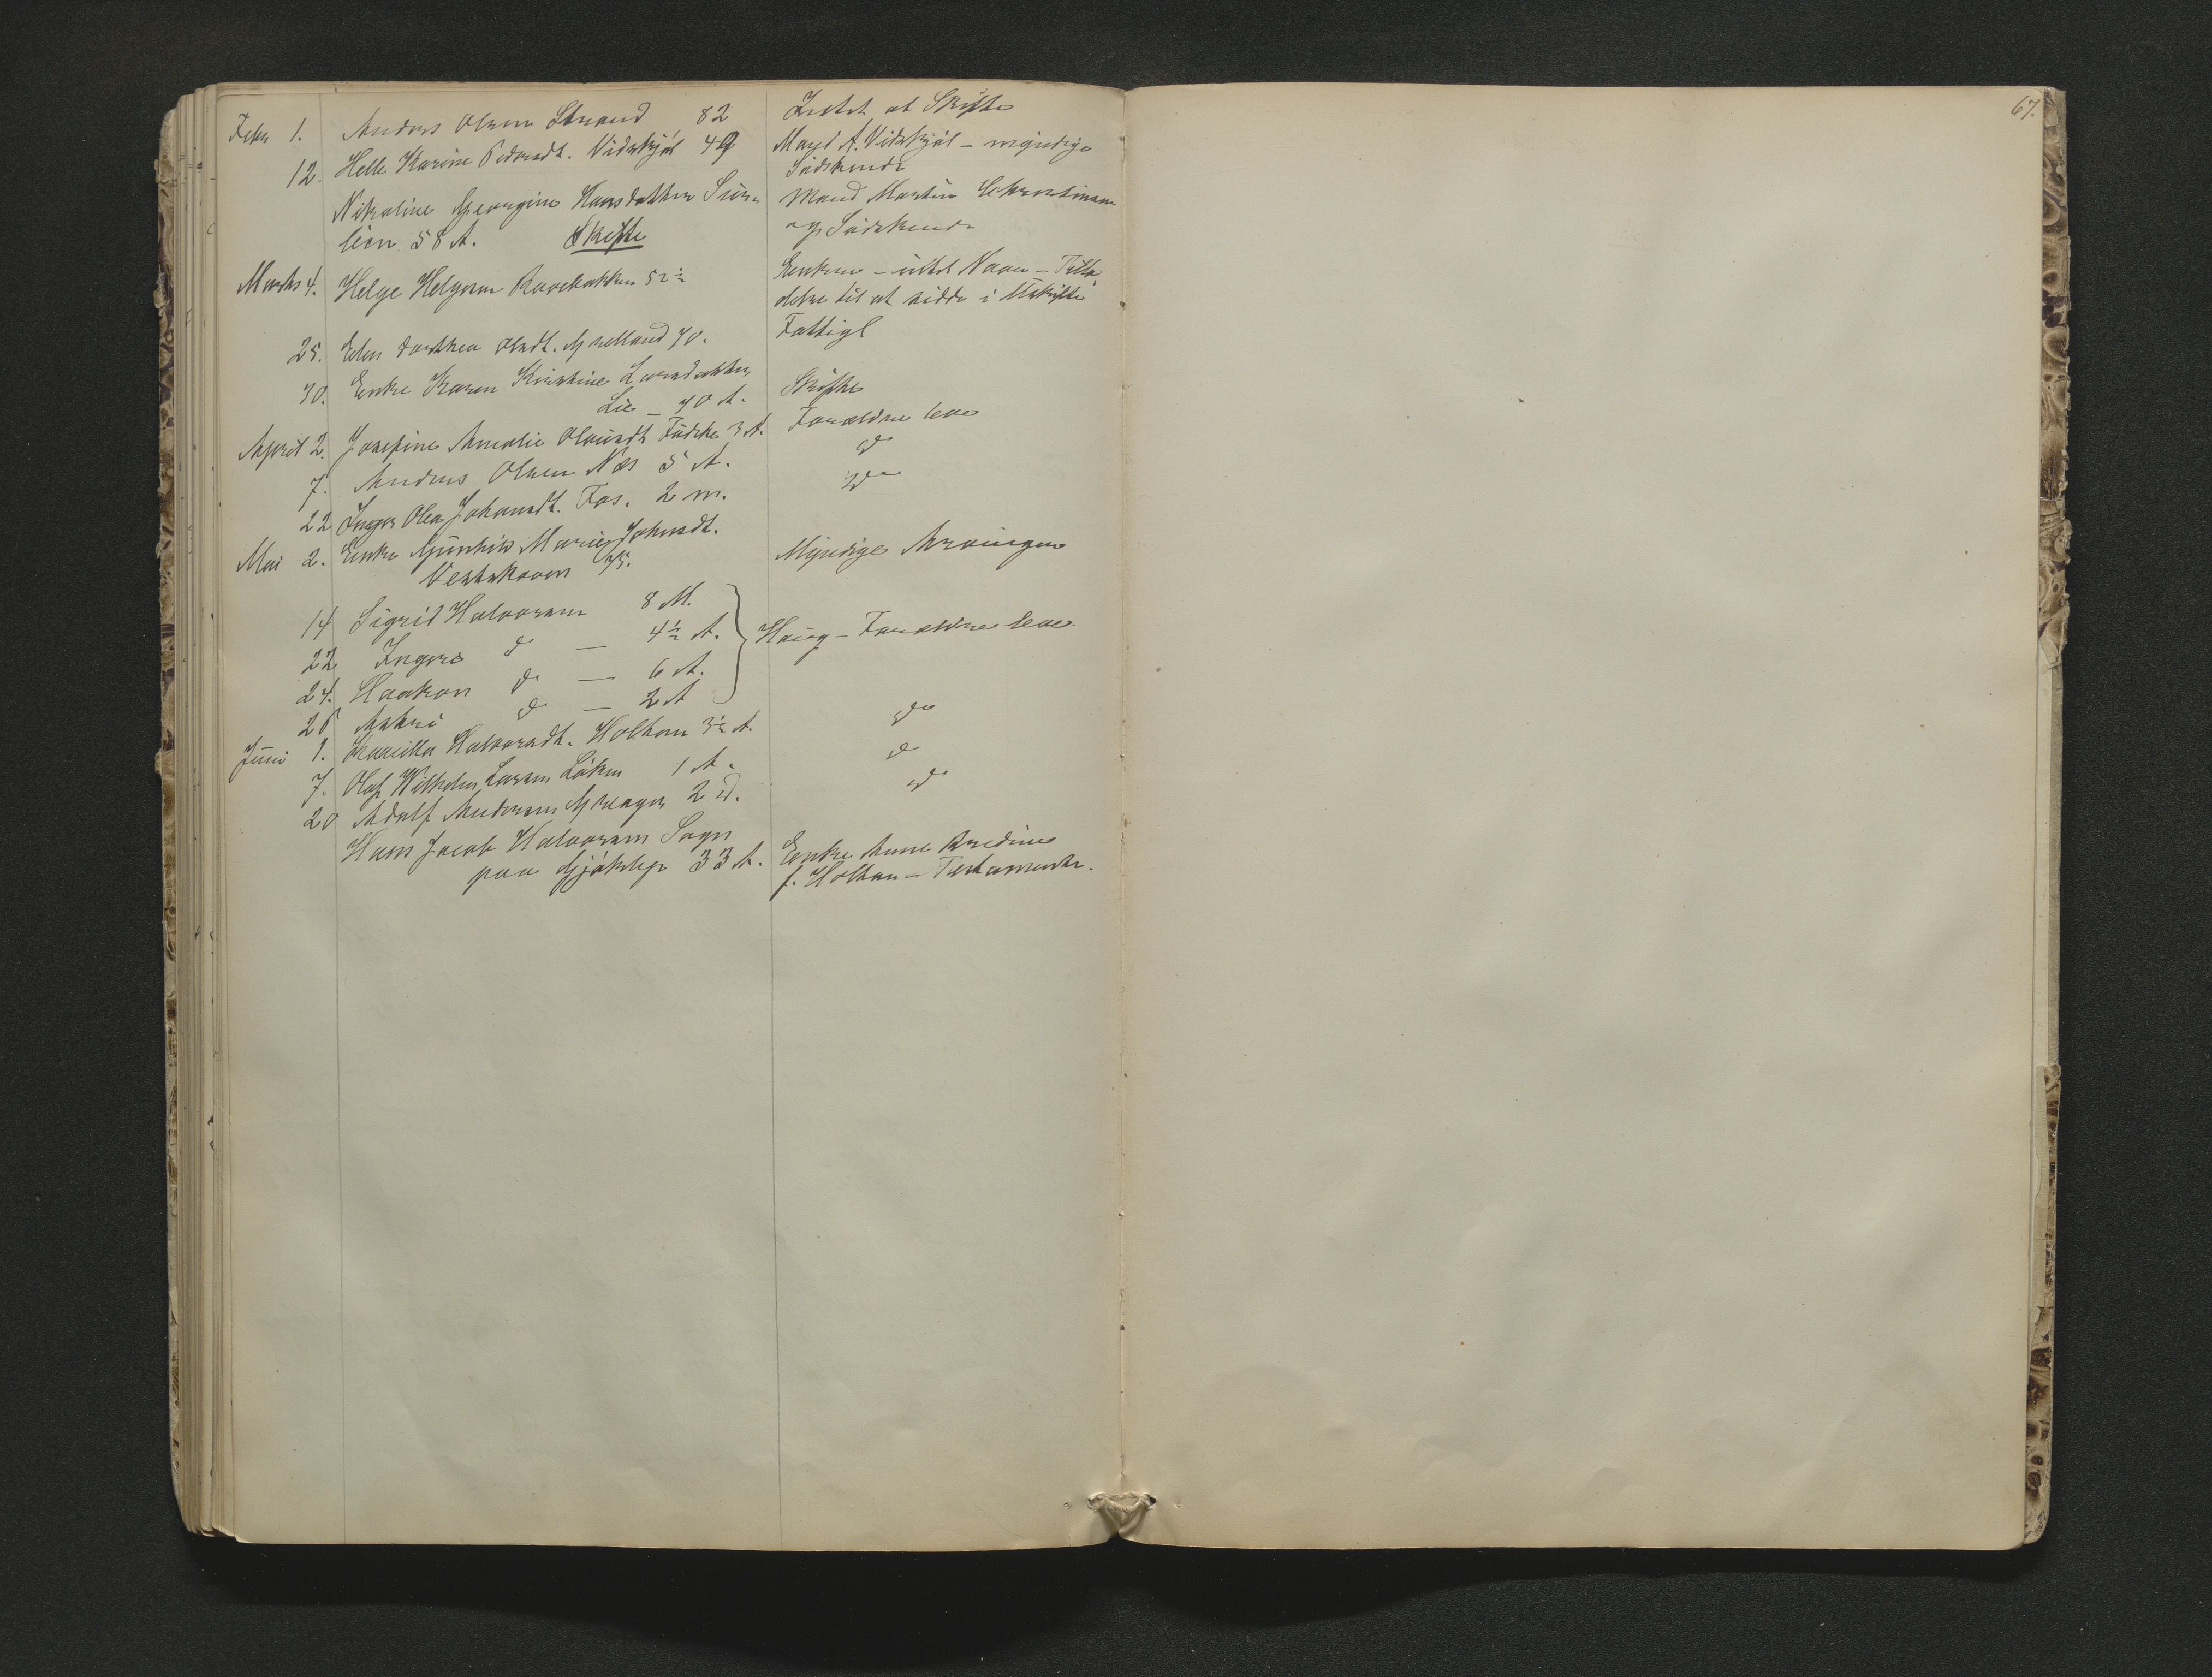 67.
Febr 1. Anders Olsen Strand 82 Intet at Skifte
12. Helle Karine Pedersdt. Vidskjöl 49 Mand A. Vidskjöl – myndige
Südskende
Nikoline Georgine Hansdatter Mand Martin
lien 58 A. Skifte og Südskende
Marts 4. Helge Helgesen 52½ Enken – uden Navn –
til at sidde i Uskifte
25. Elen Dorthea Olsdt. 70. Fattigl
30. Enke Karen Kirstine Larsdatter
Lie – 70 A. Skifte
April 2. Josefine Amalie 3 A. Forældre leve
7. Anders Olsen Næs 5 A. do
22 Inger Olea Johansdt. Fos. 2 m. do
Mai 2. Enke Gunhild Marie Johnsdt.
Vestskoven 75. Myndige Arvinger
14 Sigrid Halvorsen 8 M.
22 Ingers do – 4½ A. Haug – Forældre leve
24. Haakon do – 6 A.
26 Askri do – 2 A
Juni 1. Halvorsdt. Holtan 3½ A. do
7. Olaf Wilhelm Larsen Löken 1 A. do
20 Adolf Andersen 2 d. do
Hans Jacob Halvorsen Sogn
paa 33 A. Enke Anne
f. Holtan – Testamente.